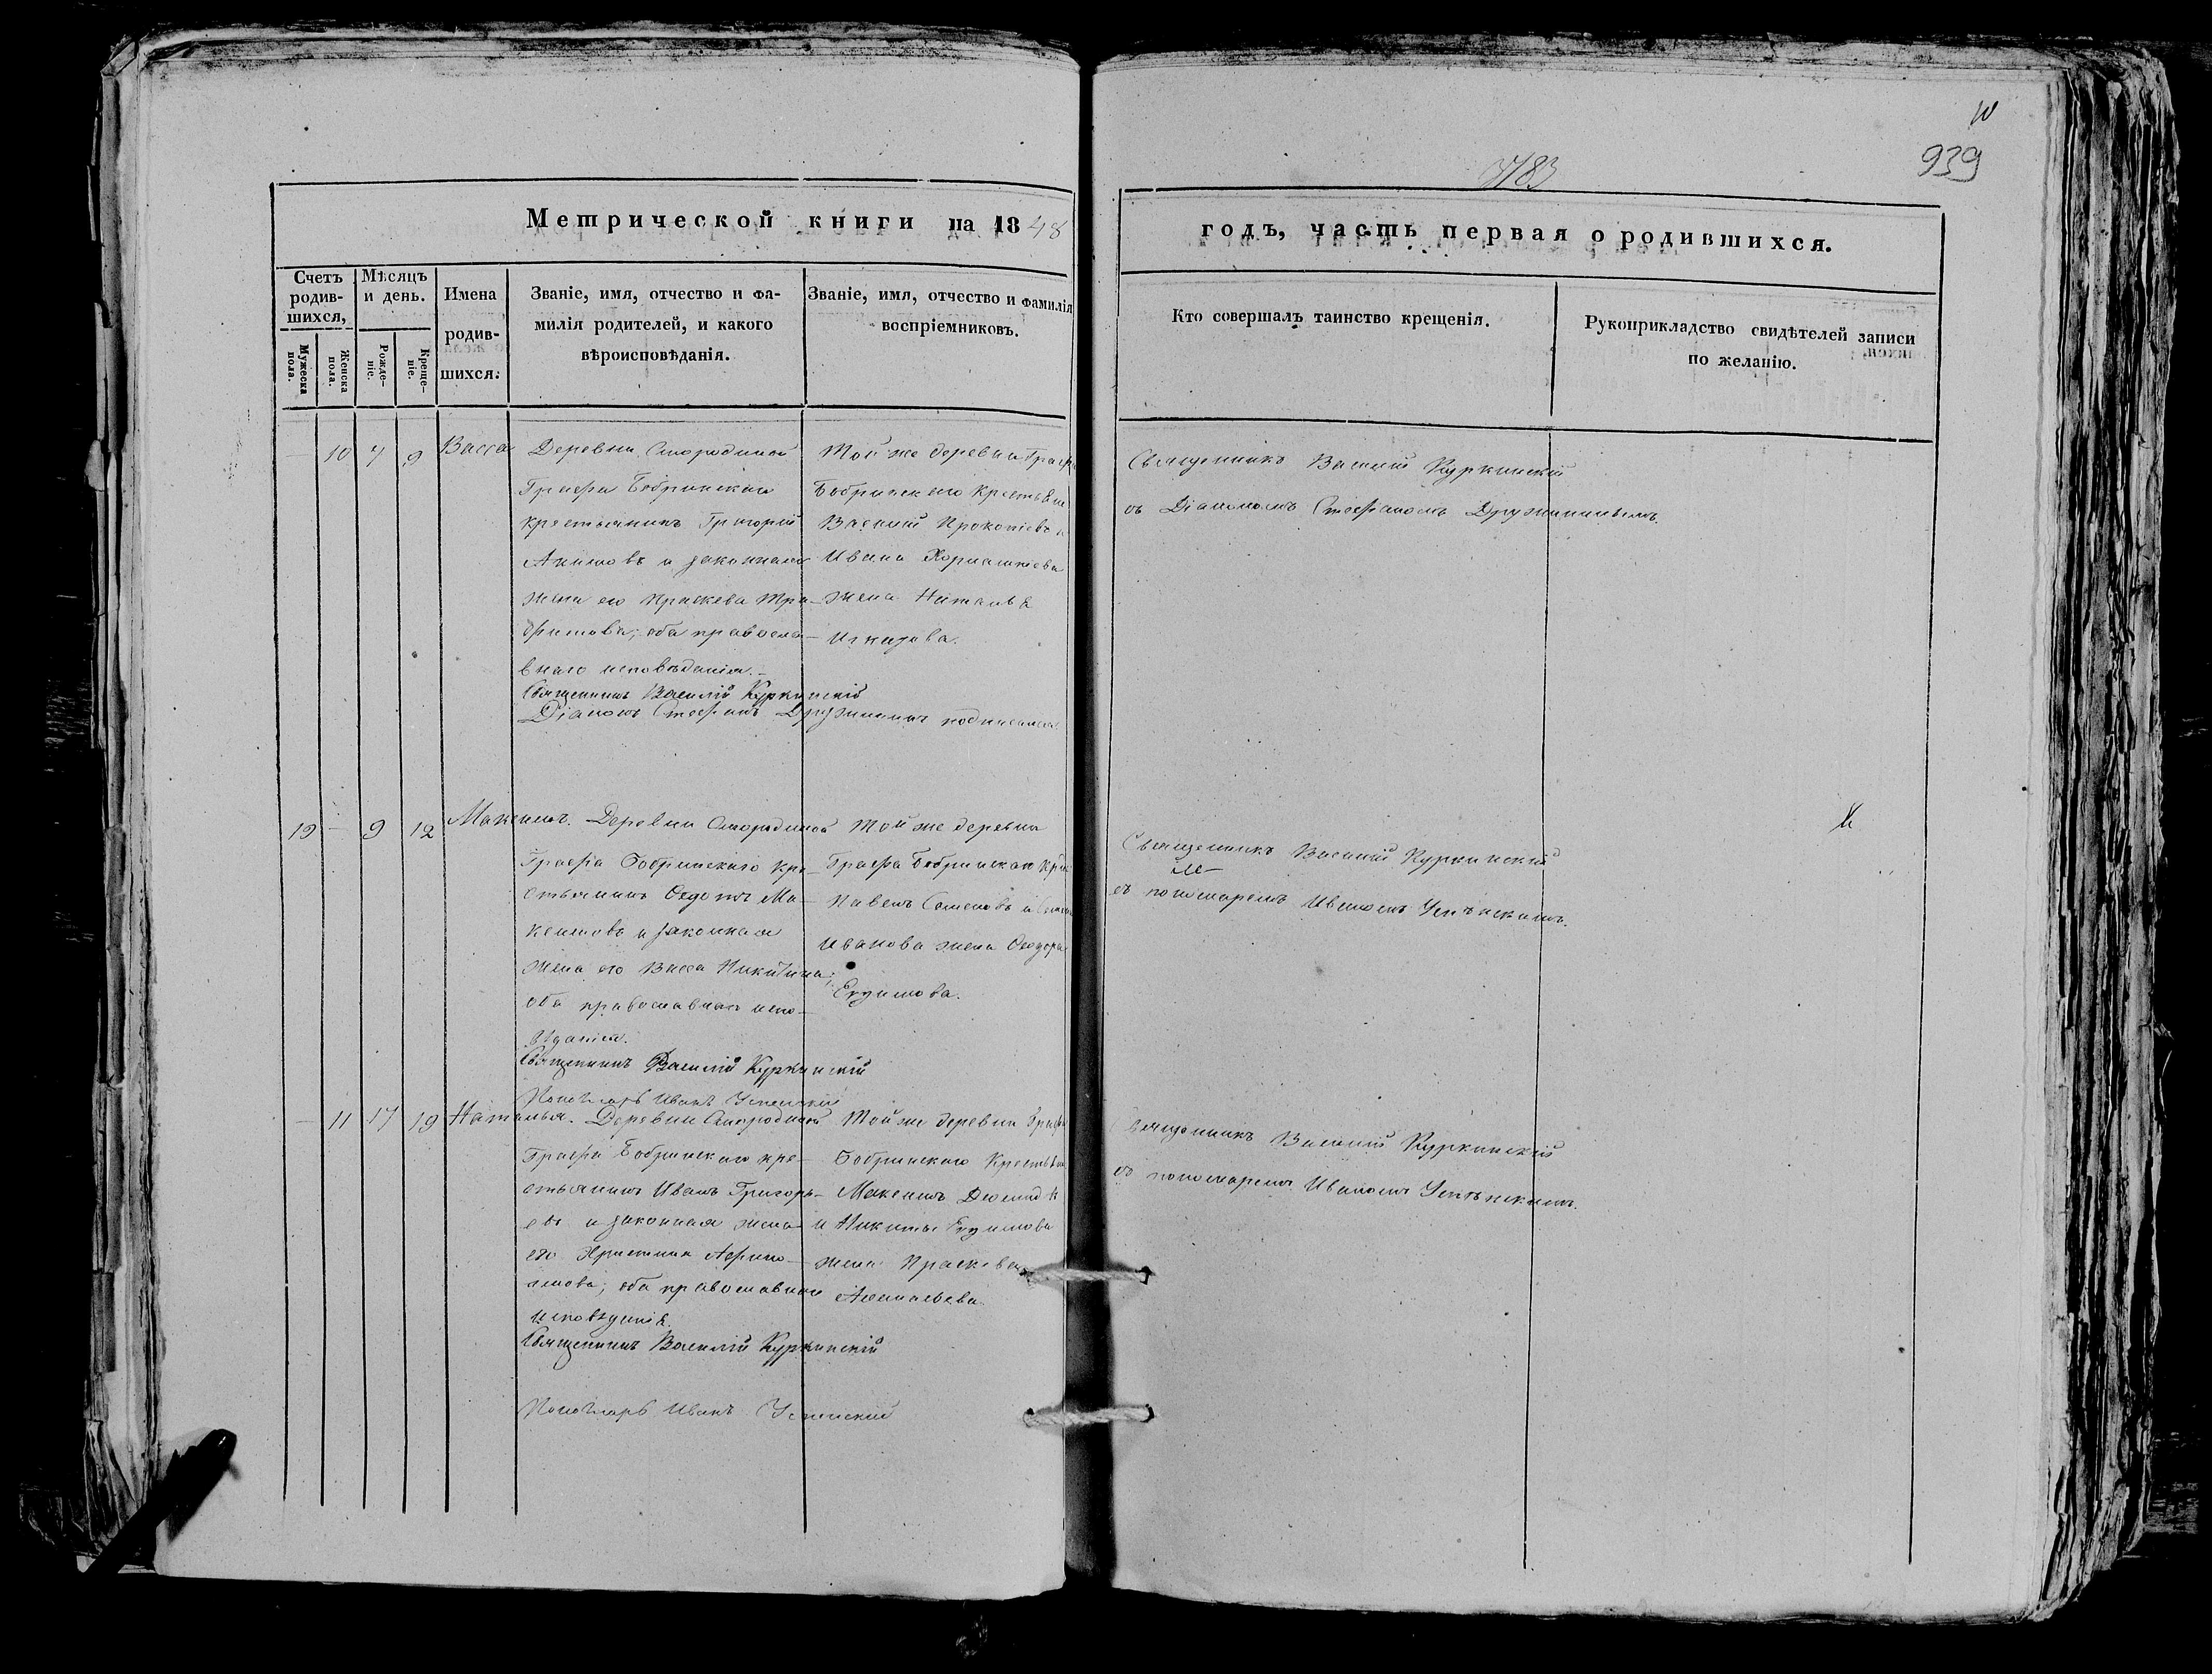 939
Метрической книги на 1848
годъ, часть первая о родившихся.
Счетъ родив-шихся,
Мужеска пола.
Женска пола.
Мѣсяцъ и день.
Рожде-ніе.
Креще-ніе.
Имена
родив-
шихся.
Званіе, имя, отчество и фа-
милія родителей, и какого
вѣроисповѣданія.
Званіе, имя, отчество и фамилія
воспріемниковъ.
Кто совершалъ таинство крещенія.
Рукоприкладство свидѣтелей записи
по желанію.
10 7 9 Васса
Деревни Смородиной
Графа Бобринскаго
крестьянинъ Григорій
и законная
жена его Праскева Три-
фонова; оба правосла-
внаго исповѣданія.
Священникъ Василій Куркинскій
Діаконъ Стефанъ Дружининъ подписался
Той же деревни Графа
Бобринскаго
Василій Прокопіевъ и
Ивана
жена Наталья
Священникъ Василій Куркинскій
съ Діакономъ Стефаномъ Дружининымъ.
19 - 9 12 Максимъ.
Деревни Смородиной
Графа Бобринскаго кре-
стьянинъ Ѳедотъ Ма-
ксимовъ и законная
жена его Васса Никитина;
оба православнаго испо-
вѣданія.
Священникъ Василій Куркинскій
Пономарь Иванъ Успенскій
Той же деревни
Графа Бобринскаго
Павелъ Семеновъ и
Иванова жена Ѳеодора
Екимова.
Священникъ Василій Куркинскій
съ пономаремъ Иваномъ Успенскимъ.
- 11 17 19 Наталья.
Деревни Смородиной
Графа Бобринскаго кре-
стьянинъ Иванъ Григорь-
евъ и законная жена
его Христина
оба православнаго
исповѣданія.
Священникъ Василій Куркинскій
Пономарь Иванъ Успенскій
Той же деревни Графа
Бобринскаго
Максимъ
и Никиты Екимова
жена Праскева
Священникъ Василій Куркинскій
съ пономаремъ Иваномъ Успенскимъ.